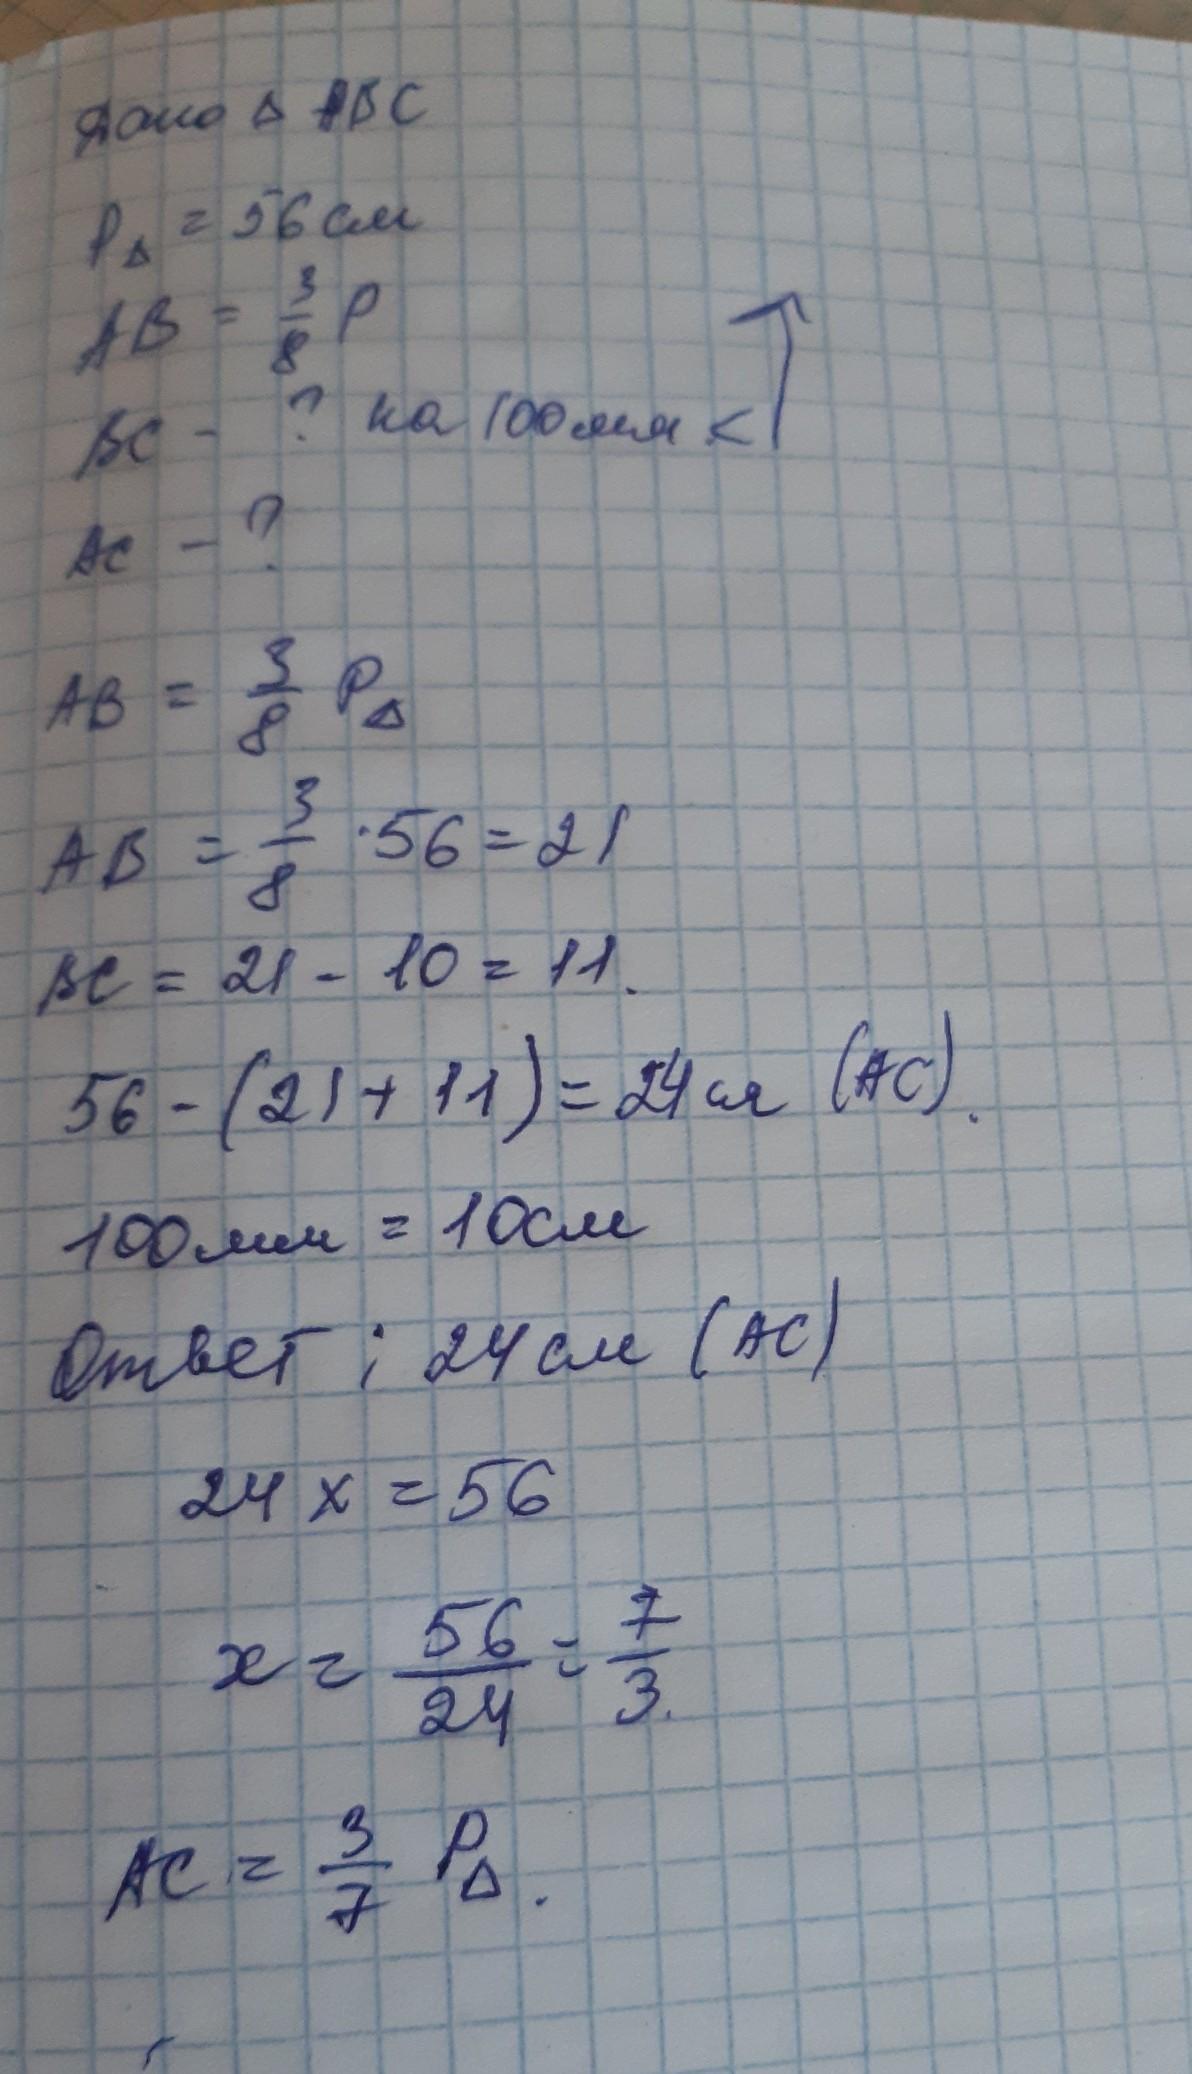 Дано Δ ABC
PΔ = 56 см
AB = 3/8 P
BC - ? на 100 мм <
AC - ?
AB = 3/8 PΔ
AB = 3/8 · 56 = 21
BC = 21 - 10 = 11.
56 - (21 + 11) = 24 см (AC).
100 мм = 10 см
Ответ : 24 см (AC)
24 x = 56
x = 56/24 = 7/3.
AC = 3/7 PΔ.